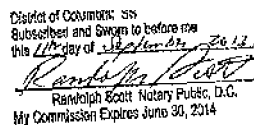 District of Columbia: SS
Subscribed and Sworn to before me
this 11th day of September, 2013
Randolph Scott
Randolph Scott Notary Public, D.C.
My Commission Expires June 30, 2014